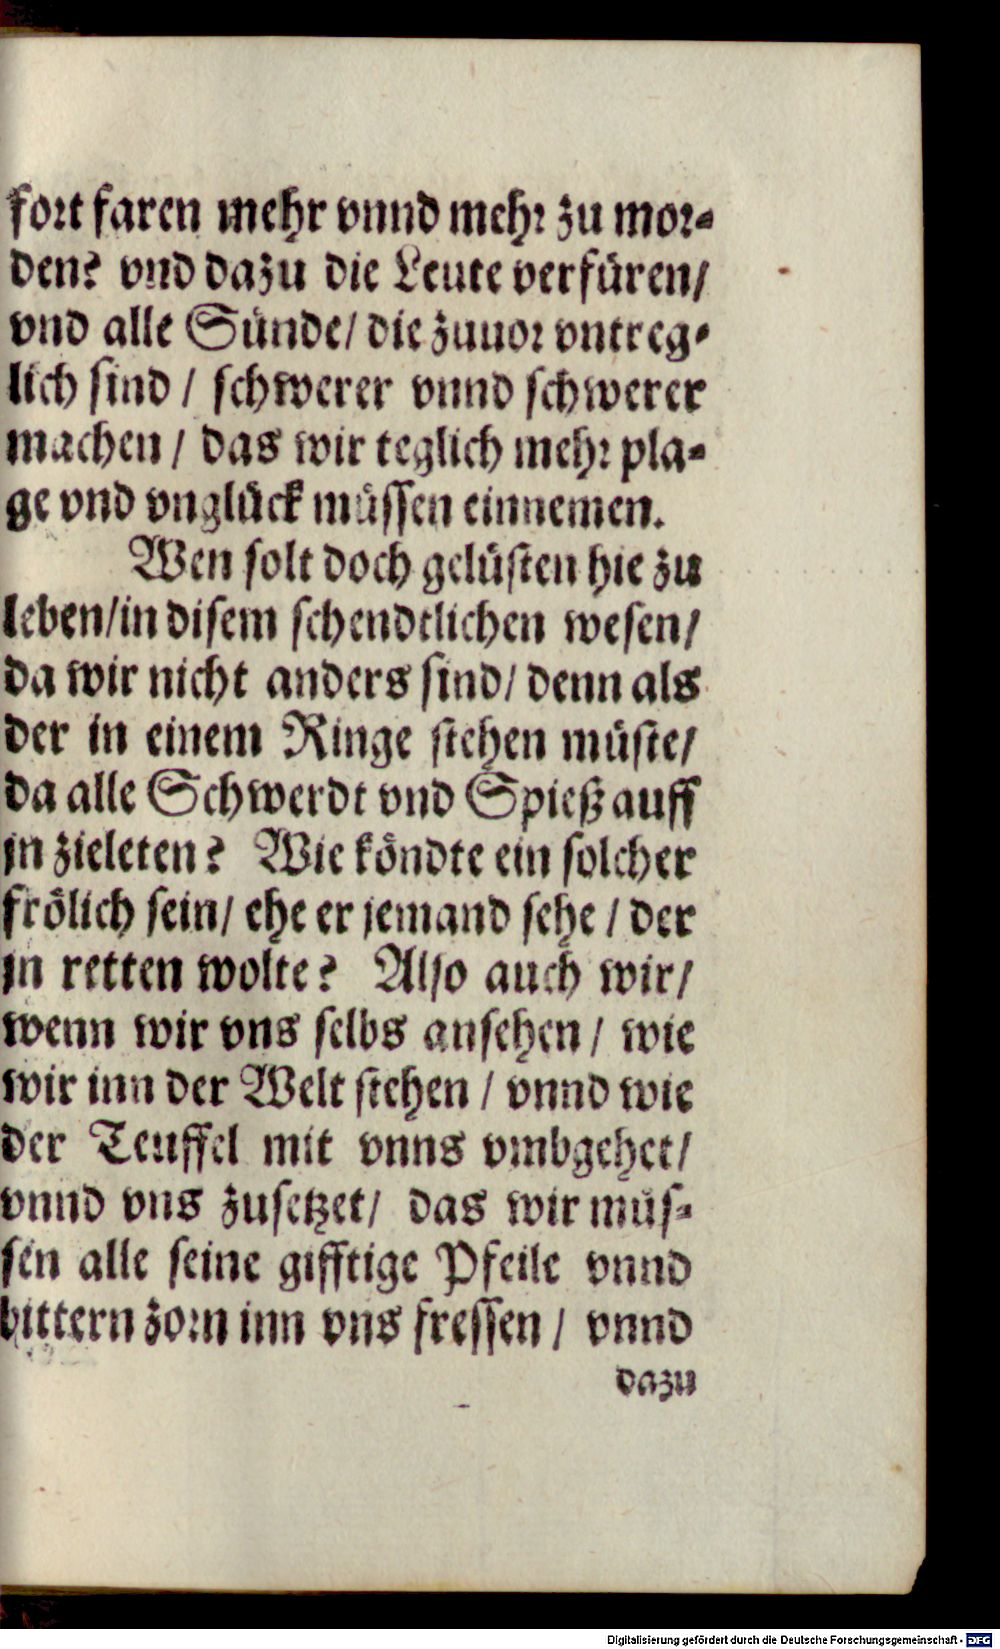 fort faren mehr vnnd mehr zu mor-
den? vnd dazu die Leute verfüren/
vnd alle Sünde/ die zuuor vntreg-
lich sind / schwerer vnnd schwerer
machen / das wir teglich mehr pla-
ge vnd vnglück müssen einnemen.
Wen solt doch gelüsten hie zu
leben/in disem schendtlichen wesen/
da wir nicht anders sind/ denn als
der in einem Ringe stehen müste/
da alle Schwerdt vnd Spieß auff
jn zieleten? Wie köndte ein solcher
frölich sein/ ehe er jemand sehe / der
jn retten wolte? Also auch wir/
wenn wir vns selbs ansehen / wie
wir inn der Welt stehen / vnnd wie
der Teuffel mit vnns vmbgehet/
vnnd vns zusetzet/ das wir müs-
sen alle seine gifftige Pfeile vnnd
bittern zorn inn vns fressen / vnnd
dazu
Digitalisierung gefördert durch die Deutsche Forschungsgemeinschaft - DFG